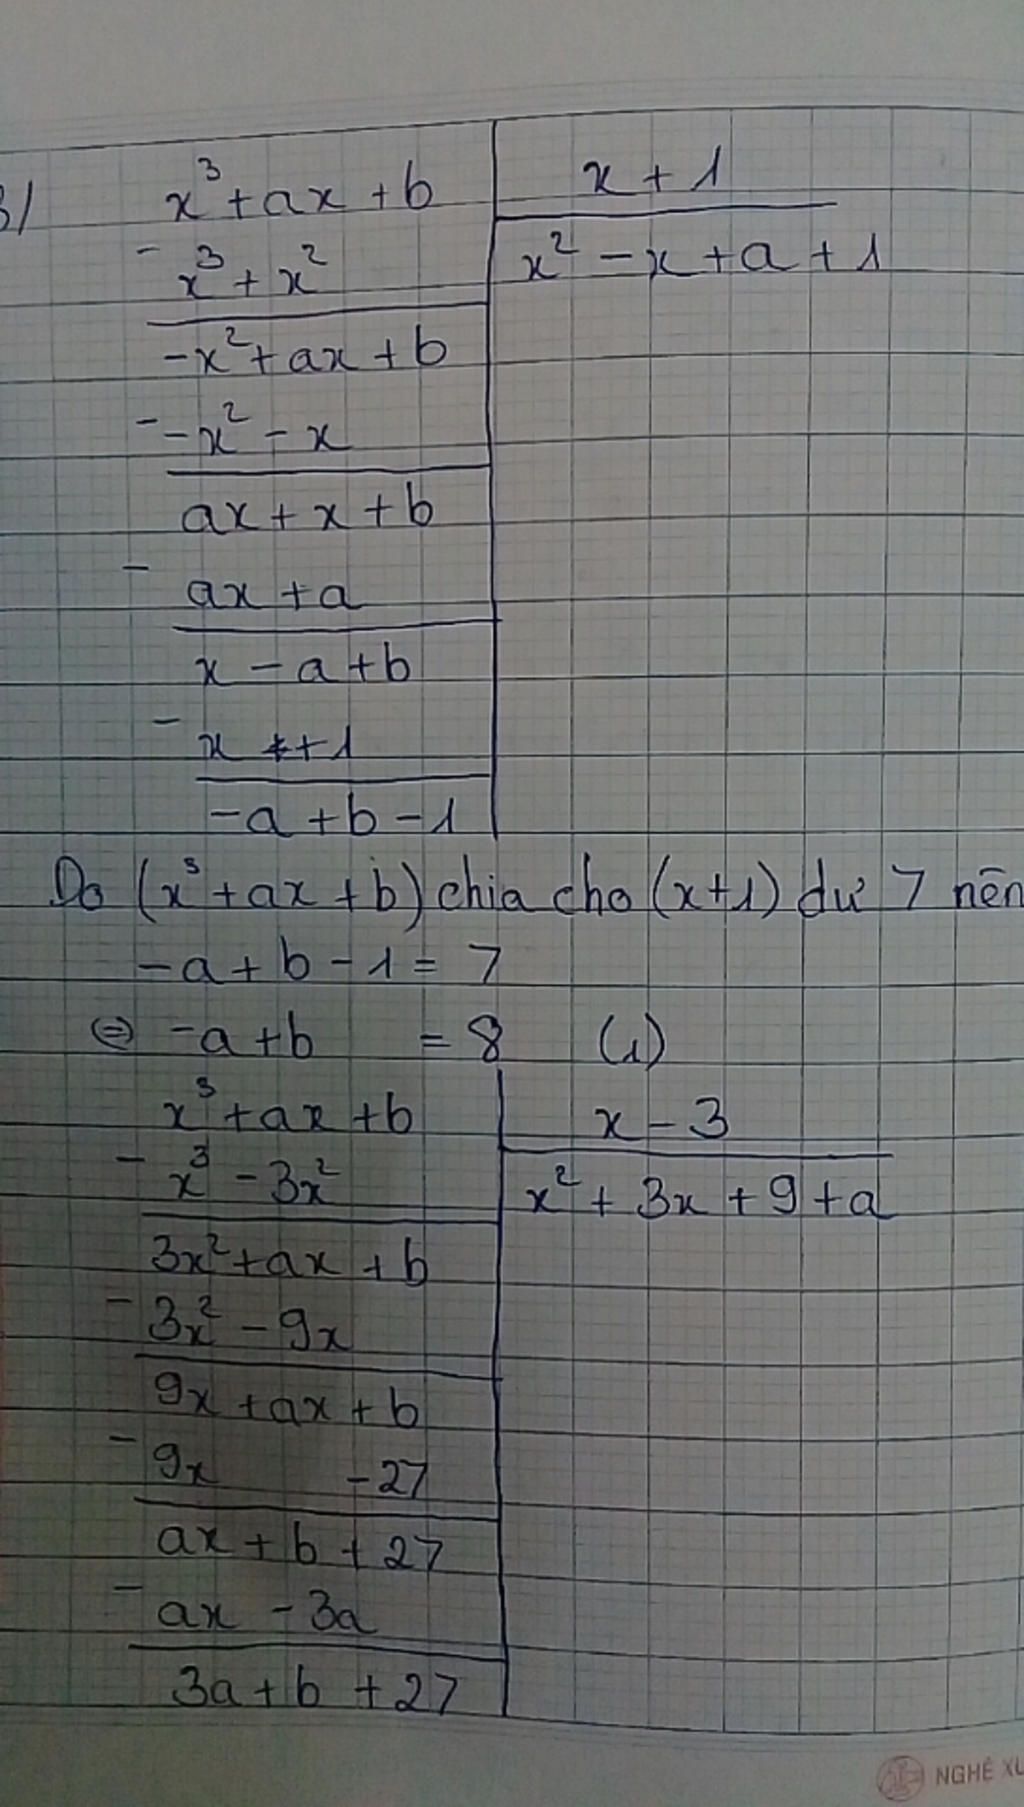 3/ x³ + ax + b | x + 1
- x³ + x² | x² - x + a + 1
-x² + ax + b
- -x² - x
ax + x + b
- ax + a
x - a + b
- x + 1
-a + b - 1
Do (x³ + ax + b) chia cho (x+1) dư 7 nên
-a + b - 1 = 7
⇔ -a + b = 8 (1)
x³ + ax + b | x - 3
- x³ - 3x² | x² + 3x + 9 + a
3x² + ax + b
- 3x² - 9x
9x + ax + b
- 9x - 27
ax + b + 27
- ax - 3a
3a + b + 27
NGHÊ XU